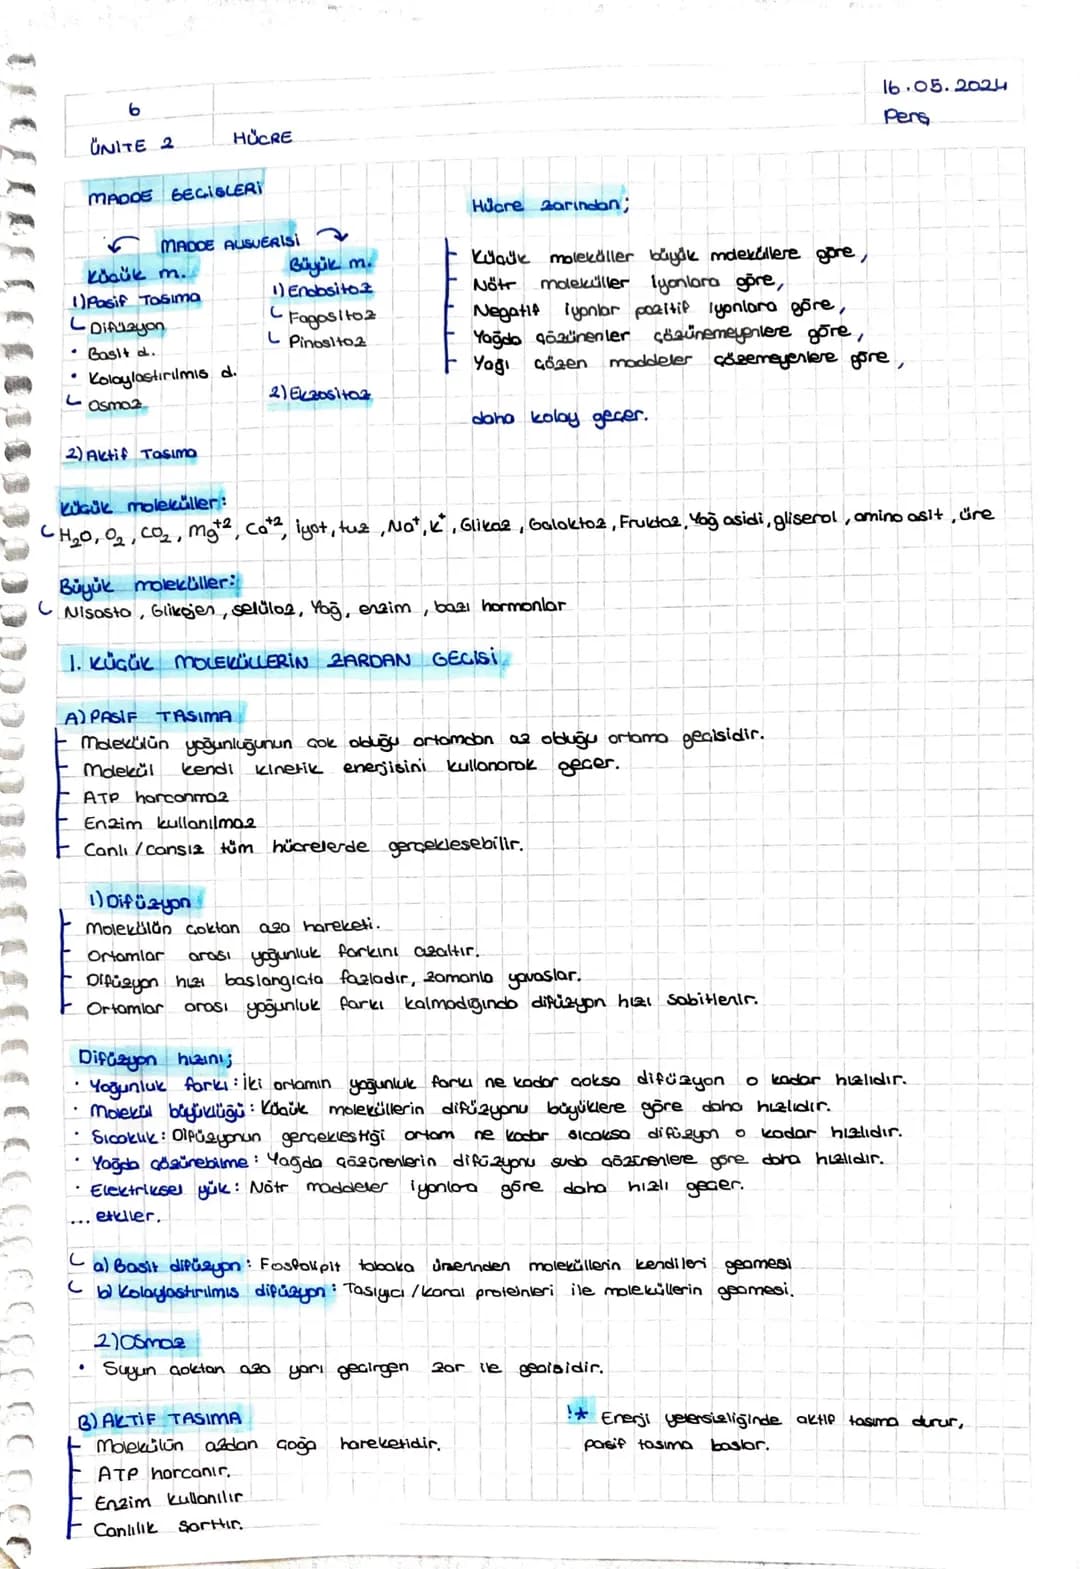 6
16.05.2024
Perş
ÜNİTE 2
HÜCRE
MADDE GEÇİŞLERİ
MADDE ALIŞVERİŞİ
Küçük m.
1) Pasif Taşıma
Difüzyon
• Basit d.
• Kolaylaştırılmış d.
Osmoz
2) Aktif Taşıma
Büyük m.
1) Endositoz
Fagositoz
Pinositoz
2) Ekzositoz
Hücre zarından;
Küçük moleküller büyük moleküllere göre,
Nötr moleküller iyonlara göre,
Negatif iyonlar pozitif iyonlara göre,
Yağda çözünenler çözünemeyenlere göre,
Yağı çözen maddeler çözemeyenlere göre,
daha kolay geçer.
Küçük moleküller:
H₂O, O₂, CO₂, Mg⁺², Ca⁺², İyot, tuz, Na⁺, K⁺, Glikoz, Galaktoz, Fruktoz, Yağ asidi, gliserol, amino asit, üre
Büyük moleküller:
Nişasta, Glikojen, selüloz, Yağ, enzim, bazı hormonlar
1. KÜÇÜK MOLEKÜLLERİN ZARDAN GEÇİŞİ
A) PASİF TAŞIMA
Molekülün yoğunluğunun çok olduğu ortamdan az olduğu ortama geçişidir.
Molekül kendi kinetik enerjisini kullanarak geçer.
ATP harcanmaz
Enzim kullanılmaz
Canlı / cansız tüm hücrelerde gerçekleşebilir.
1) Difüzyon
Molekülün çoktan aza hareketi.
Ortamlar arası yoğunluk farkını azaltır.
Difüzyon hızı başlangıçta fazladır, zamanla yavaşlar.
Ortamlar arası yoğunluk farkı kalmadığında difüzyon hızı sabitlenir.
Difüzyon hızını;
• Yoğunluk farkı: İki ortamın yoğunluk farkı ne kadar çoksa difüzyon o kadar hızlıdır.
• Molekül büyüklüğü: Küçük moleküllerin difüzyonu büyüklere göre daha hızlıdır.
• Sıcaklık: Difüzyonun gerçekleştiği ortam ne kadar sıcaksa difüzyon o kadar hızlıdır.
• Yağda çözünebilme: Yağda çözünenlerin difüzyonu suda çözünenlere göre daha hızlıdır.
• Elektriksel yük: Nötr maddeler iyonlara göre daha hızlı geçer.
... etkiler.
a) Basit difüzyon: Fosfolipit tabaka üzerinden moleküllerin kendileri geçmesi
b) Kolaylaştırılmış difüzyon: Taşıyıcı / kanal proteinleri ile moleküllerin geçmesi.
2) Osmoz
• Suyun çoktan aza yarı geçirgen zar ile geçişidir.
B) AKTİF TAŞIMA
Molekülün azdan çoğa hareketidir.
ATP harcanır.
Enzim kullanılır
Canlılık şarttır.
!* Enerji yetersizliğinde aktif taşıma durur,
pasif taşıma başlar.